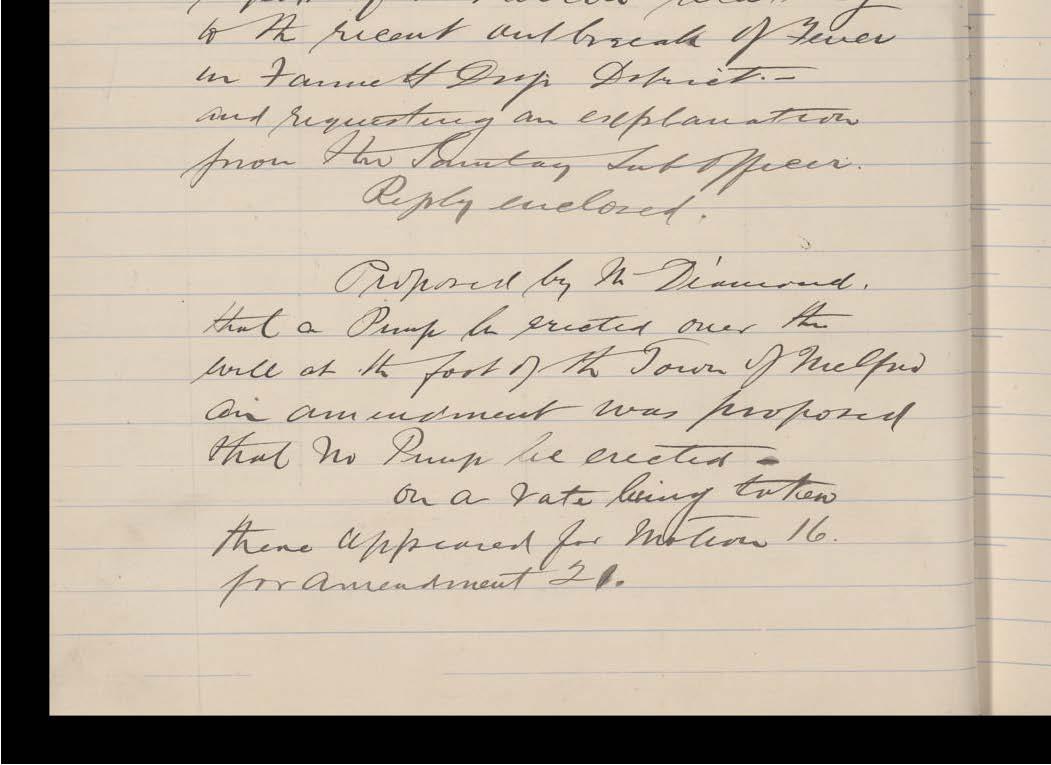 to the recent outbreak of Fever
in Fannett Disp District.-
and requesting an explanation
from the Sanitary Sub Officer.
Reply enclosed.
Proposed by Mr Diamond.
that a Pump be erected over the
well at the foot of the Town of Milford
an amendment was proposed
that No Pump be erected -
on a vote being taken
there appeared for Motion 16.
for amendment 21.